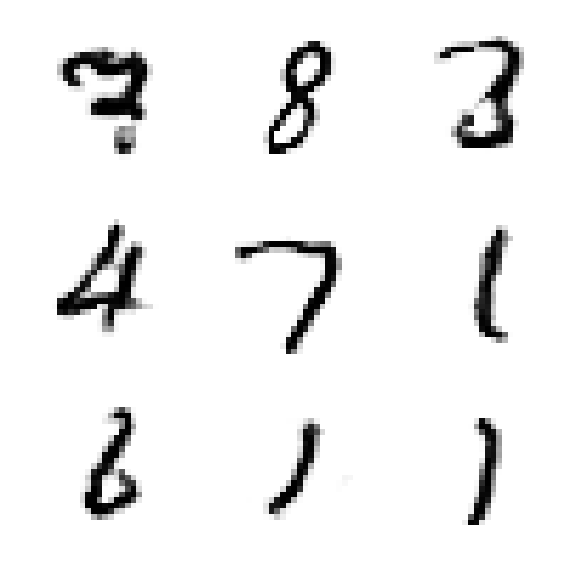 7 8 3
4 7 1
6 1 1